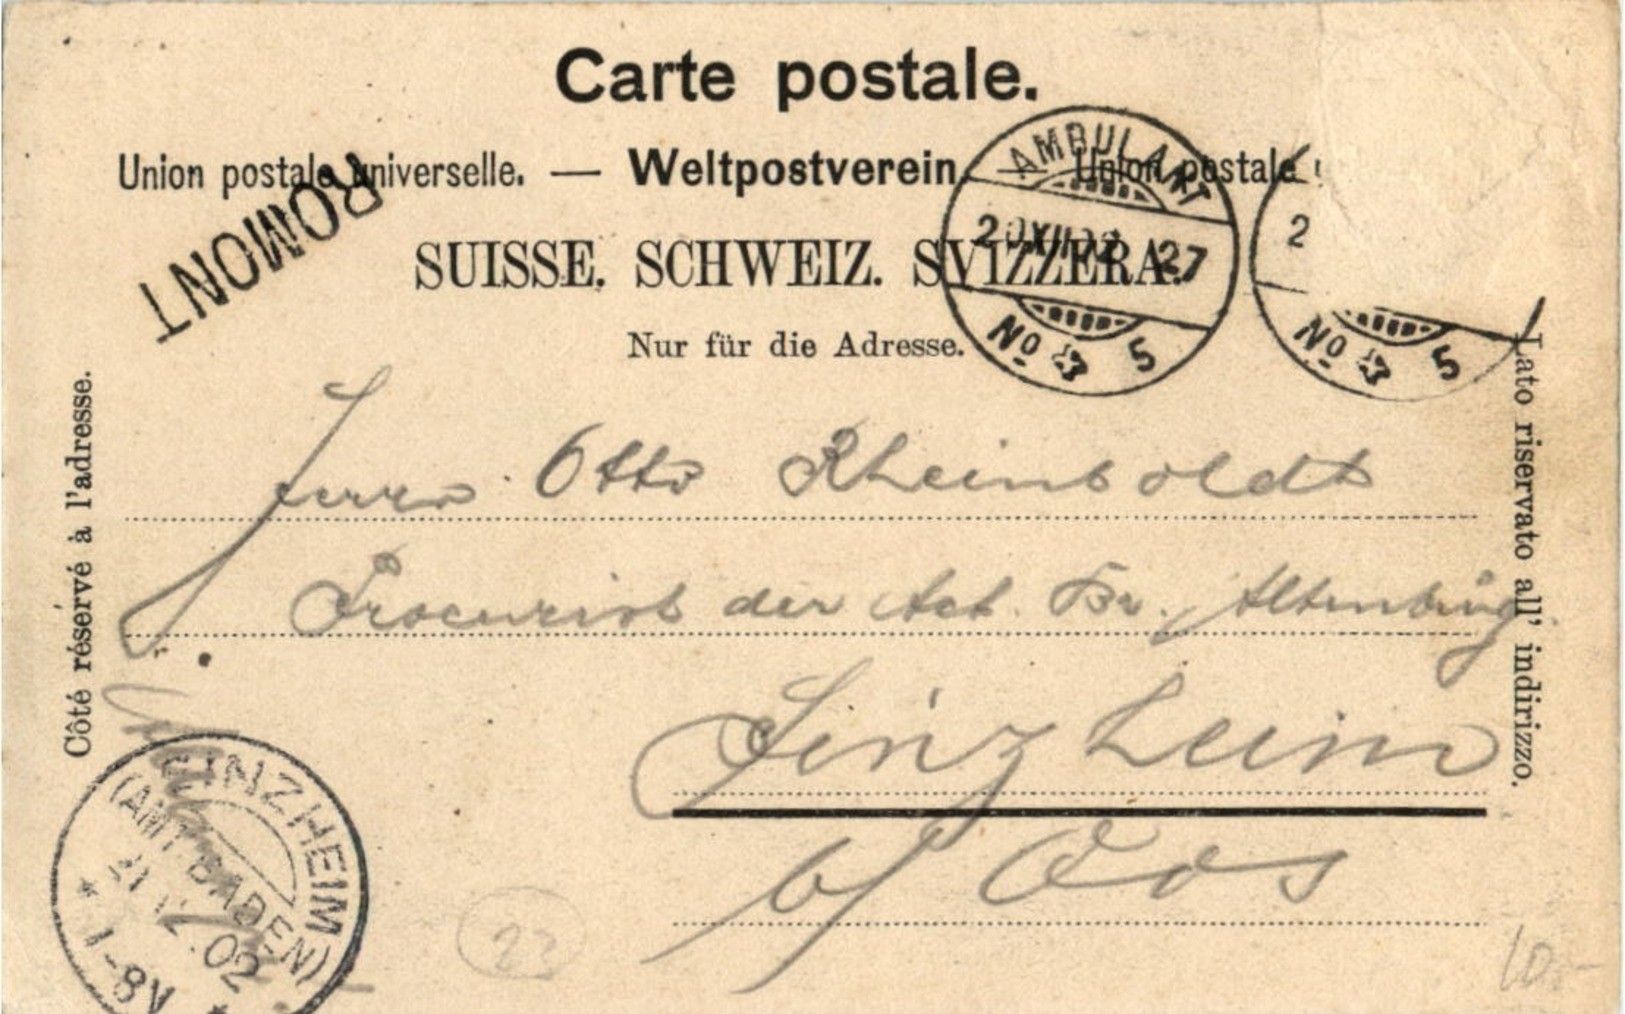 Carte postale.
Union postale universelle. — Weltpostverein. Union postale
ROMONT
SUISSE. SCHWEIZ. SVIZZERA.
Nur für die Adresse.
AMBULANT
20 XII 02 27
No 5
2
No 5
Côté réservé à l'adresse.
Lato riservato all' indirizzo.
Herrn Otto Rheinboldt
Procurist der Act. Br. Altenburg
Sinzheim
b/ Oos
SINZHEIM
(AMT BADEN)
02
1-8V
22
10.-